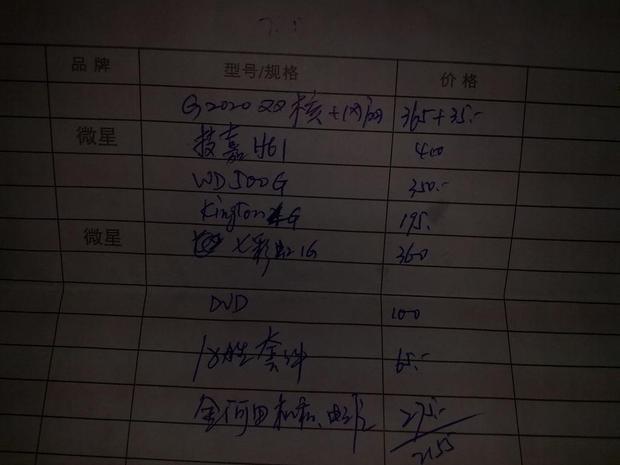 品牌 型号/规格 价格
G2020 双核 365+35.-
微星 技嘉H61 400
WD500G 350.-
Kington 4G 195.
微星 七彩虹1G 360
DVD 100
套件 65.-
金河田机箱、电源 275.-
2155